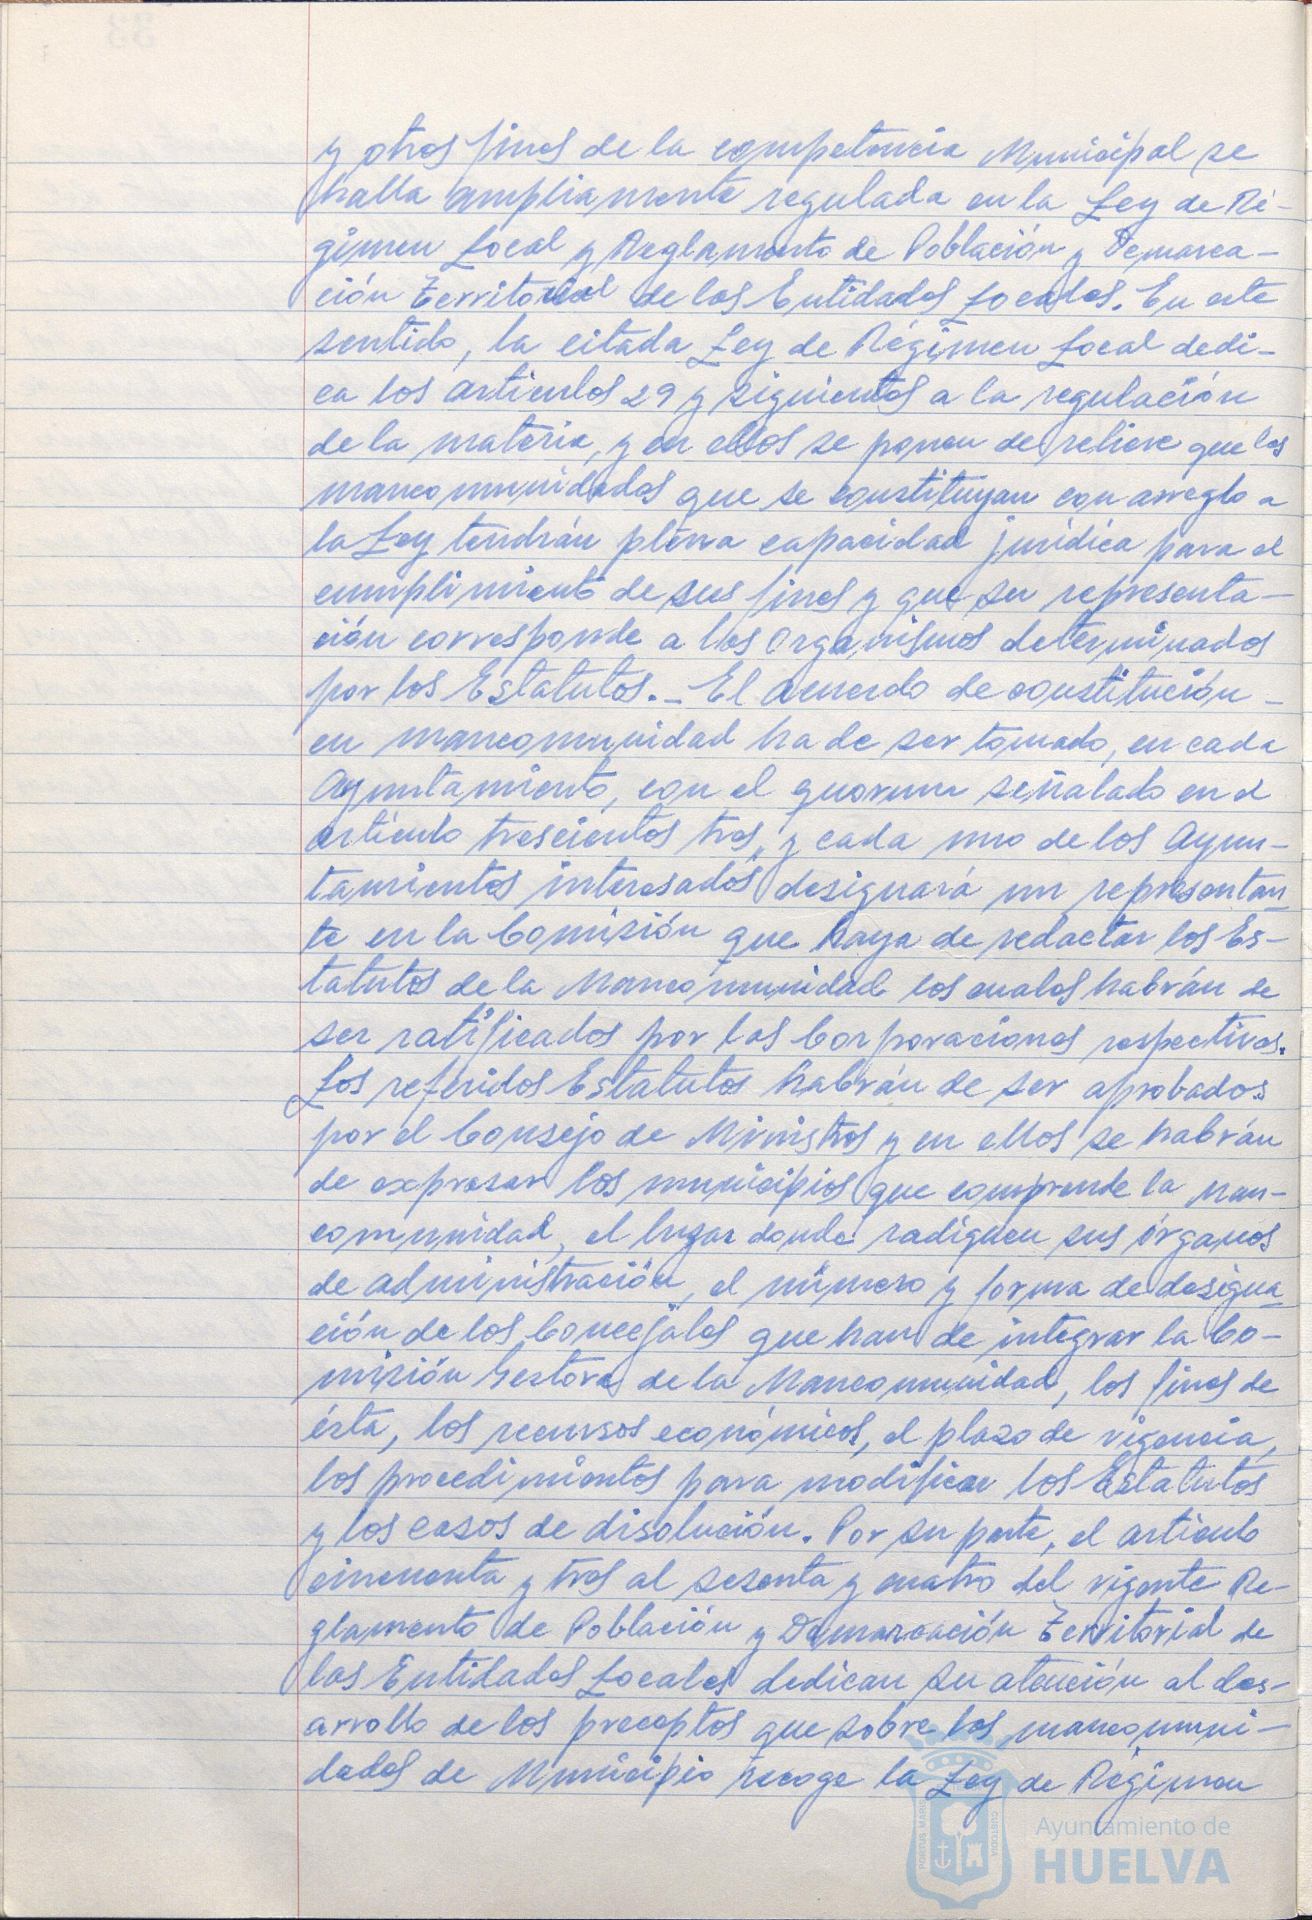 y otros fines de la competencia Municipal se
halla ampliamente regulada en la Ley de Ré-
gimen Local y Reglamento de Población y Demarca-
ción Territorial de las Entidades Locales. En este
sentido, la citada Ley de Régimen Local dedi-
ca los artículos 29 y siguientes a la regulación
de la materia, y en ellos se ponen de relieve que las
mancomunidades que se constituyan con arreglo a
la Ley tendrán plena capacidad jurídica para el
cumplimiento de sus fines y que su representa-
ción corresponde a los Organismos determinados
por los Estatutos._ El acuerdo de constitución -
en mancomunidad ha de ser tomado, en cada
Ayuntamiento, con el quorum señalado en el
artículo trescientos tres, y cada uno de los Ayun-
tamientos interesados designará un representan-
te en la Comisión que haya de redactar los Es-
tatutos de la Mancomunidad los cuales habrán de
ser ratificados por las Corporaciones respectivas.
Los referidos Estatutos habrán de ser aprobados
por el Consejo de Ministros y en ellos se habrán
de expresar los municipios que comprende la man-
comunidad, el lugar donde radiquen sus órganos
de administración, el número y forma de designa-
ción de los Concejales que han de integrar la Co-
misión Gestora de la Mancomunidad, los fines de
ésta, los recursos económicos, el plazo de vigencia,
los procedimientos para modificar los Estatutos
y los casos de disolución. Por su parte, el artículo
cincuenta y tres al sesenta y cuatro del vigente Re-
glamento de Población y Demarcación Territorial de
las Entidades Locales dedican su atención al des-
arrollo de los preceptos que sobre las mancomuni-
dades de Municipio recoge la Ley de Régimen
PORTUS MARIS
CUSTODIA
Ayuntamiento de
HUELVA